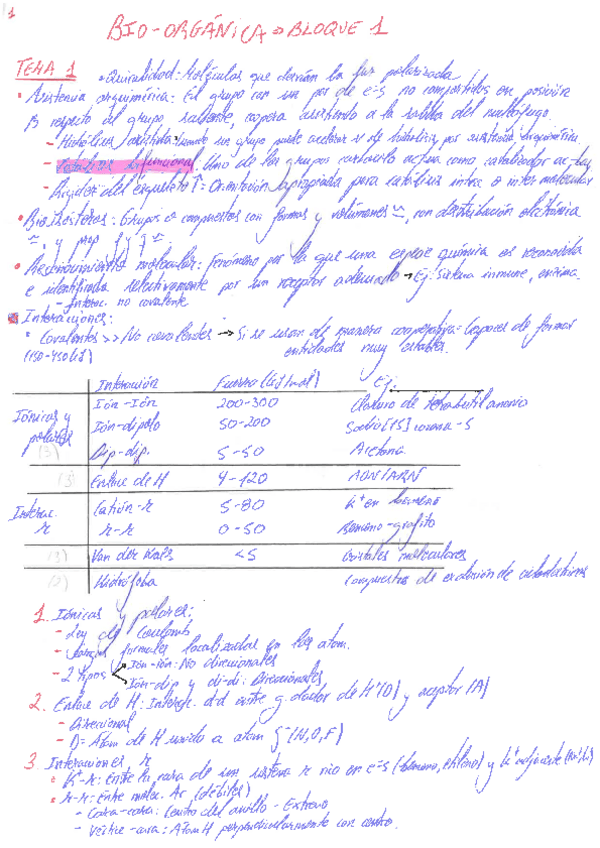 1
BIO-ORGÁNICA → BLOQUE 1
TEMA 1
• Quiralidad: Moléculas que desvían la luz polarizada
• Asistencia anquimérica: El grupo con un par de e-s no compartidos en posición
β respecto al grupo saliente, coopera asistiendo a la salida del nucleófugo
- Hidrólisis asistida: cuando un grupo puede acelerar v de hidrólisis por asistencia anquimérica
- Catálisis bifuncional: Uno de los grupos carboxilo actúa como catalizador
- Rigidez del esqueleto ↑ = Orientación apropiada para catálisis intra o inter molecular
• Bioisósteros: Grupos o compuestos con formas y volúmenes ≃, con distribución electrónica
≃, y prop f y q ≃
• Reconocimiento molecular: Fenómeno por la que una especie química es reconocida
e identificada selectivamente por un receptor adecuado → Ej: Sistema inmune, enzima.
- Interac. no covalente
Interacciones:
• Covalentes >> No covalentes → Si se usan de manera cooperativa = Capaces de formar
(150-450 kJ) entidades muy estables.
Interacción Fuerza (kJ/mol) Ej.
Iónicas y Ión-Ión 200-300 Cloruro de tetrabutilamonio
polares Ión-dipolo 50-200 Sodio [15] corona-5
(3) Dip-dip. 5-50 Acetona
(3) Enlace de H 4-120 ADN/ARN
Catión-π 5-80 K+ en benceno
Interac. π π-π 0-50 Benceno-grafito
(3) Van der Waals <5 Cristales moleculares
(2) Hidrófoba Compuestos de exclusión de ciclodextrinas
1. Iónicas y polares:
- Ley de Coulomb
- Cargas formales localizadas en los átom.
- 2 tipos Ión-ión: No direccionales
Ión-dip y di-di: Direccionales
2. Enlace de H: Interac. d-d entre g. dador de H (D) y aceptor (A)
- Direccional
- D = Átom de H unido a átom δ- (N, O, F)
3. Interacciones π
• K+-π: Entre la cara de un sistema π rico en e-s (benceno, etileno) y K+ adyacente
• π-π: Entre moléc. Ar (débiles)
- Cara-cara: Centro del anillo - Extremo
- Vértice-cara: Átom H perpendicularmente con centro.